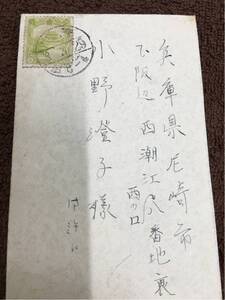 兵庫県尼崎市
下阪辺西潮江
番地裏
西の口
小野澄子様